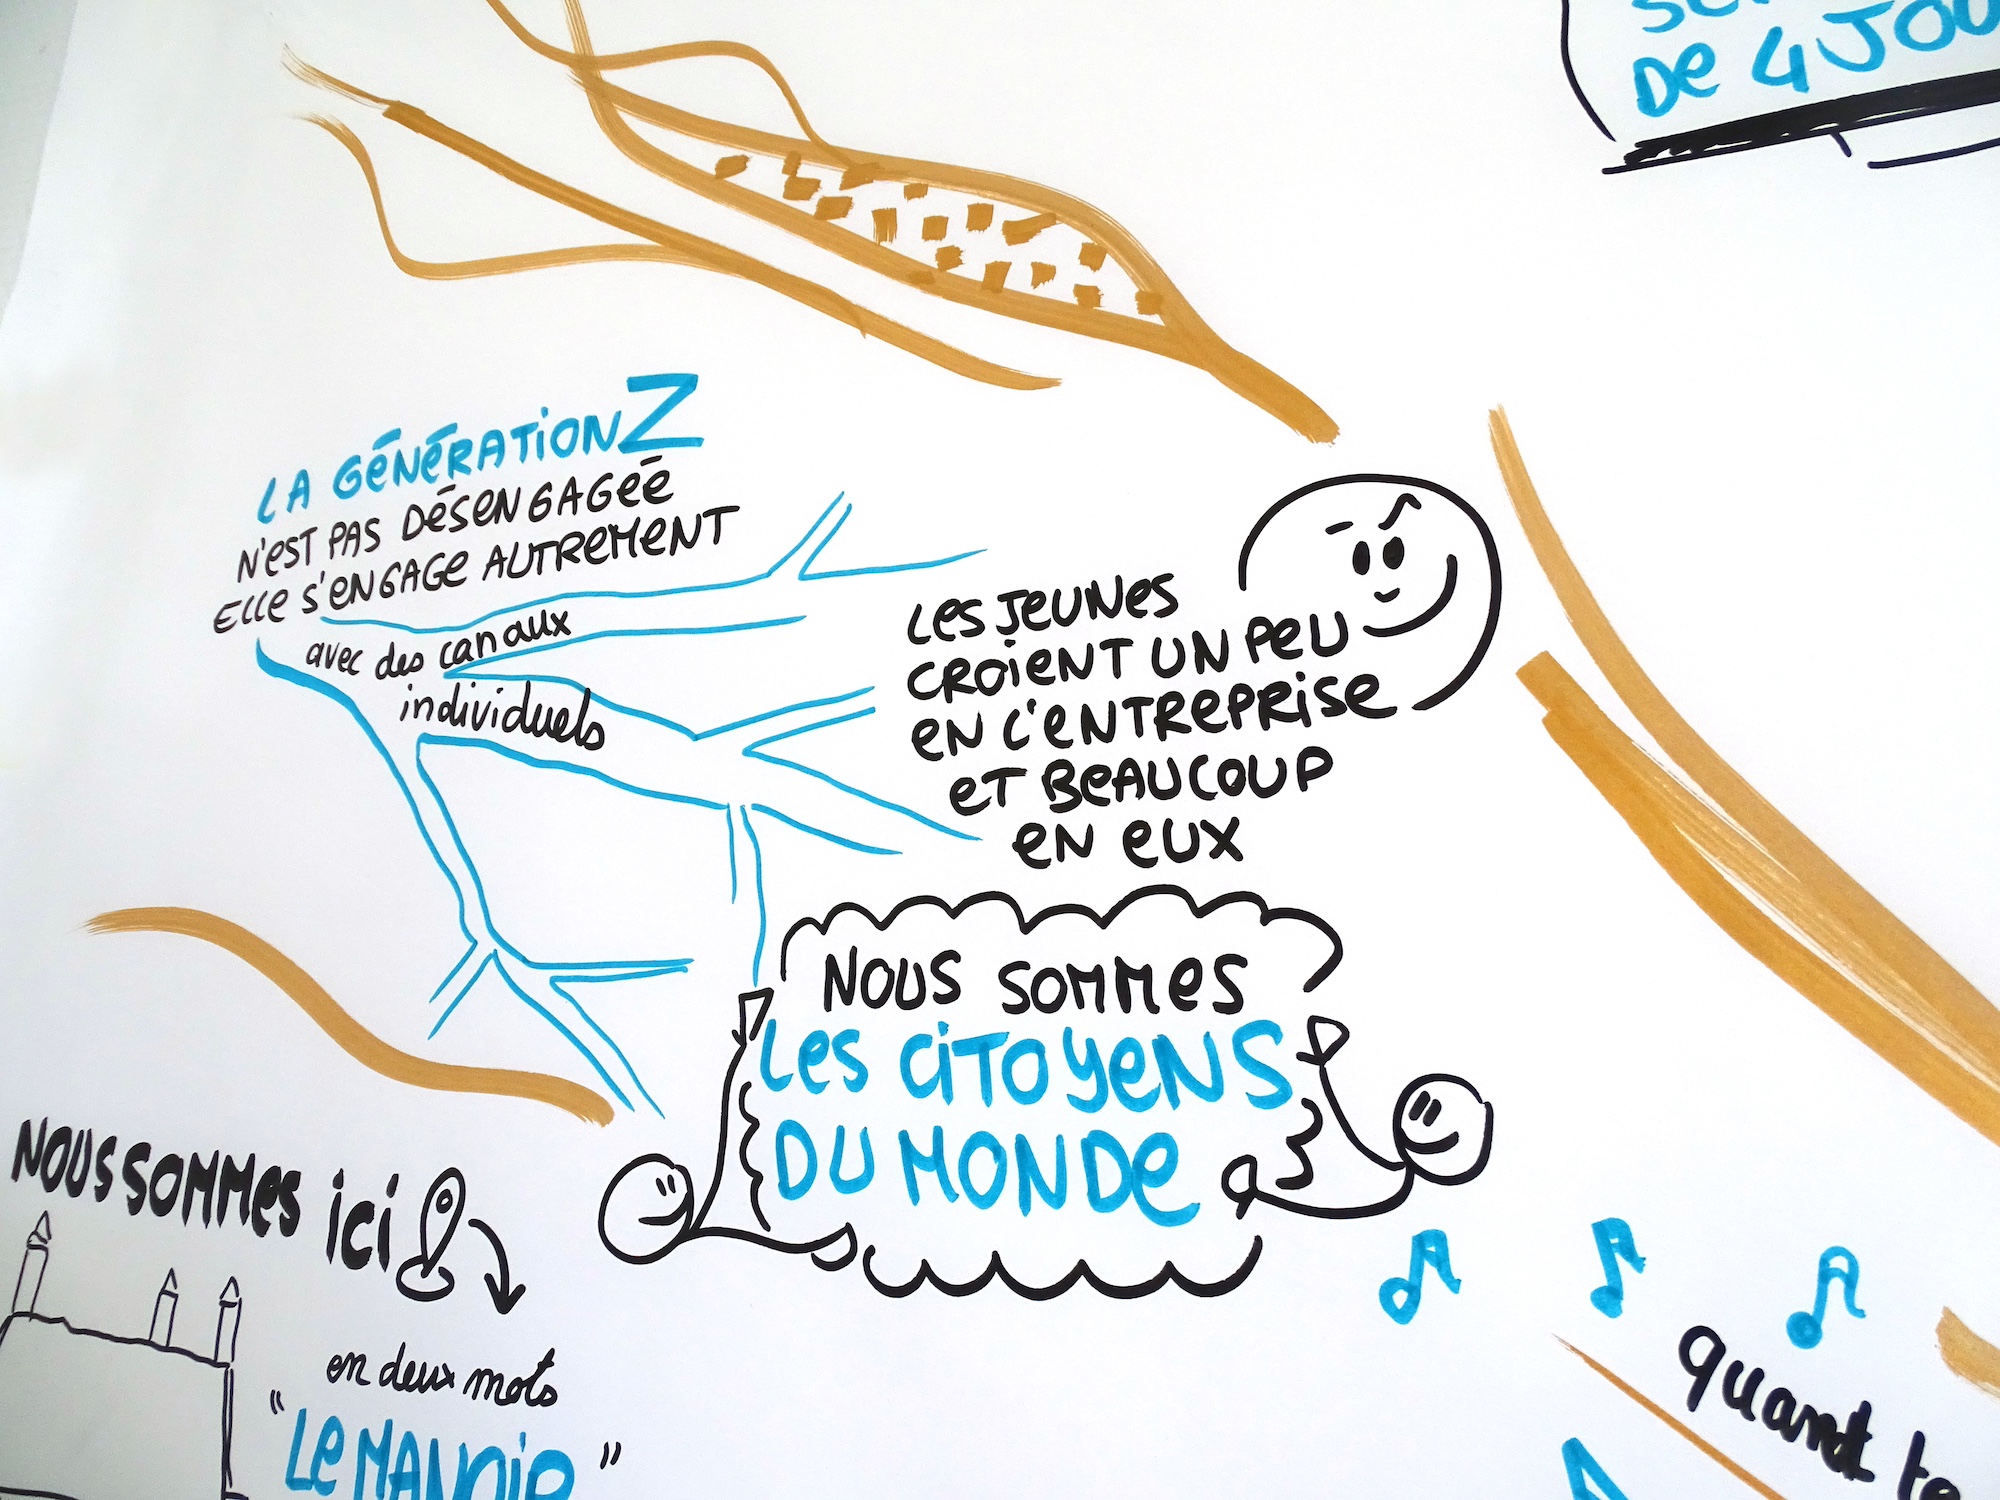 DE 4 JOU
LA GÉNÉRATION Z
N'EST PAS DÉSENGAGÉE
ELLE S'ENGAGE AUTREMENT
avec des canaux
individuels
LES JEUNES
CROIENT UN PEU
EN L'ENTREPRISE
ET BEAUCOUP
EN EUX
NOUS SOMMES
LES CITOYENS
DU MONDE
NOUS SOMMES ici
en deux mots
"LE MANOIR"
quand te